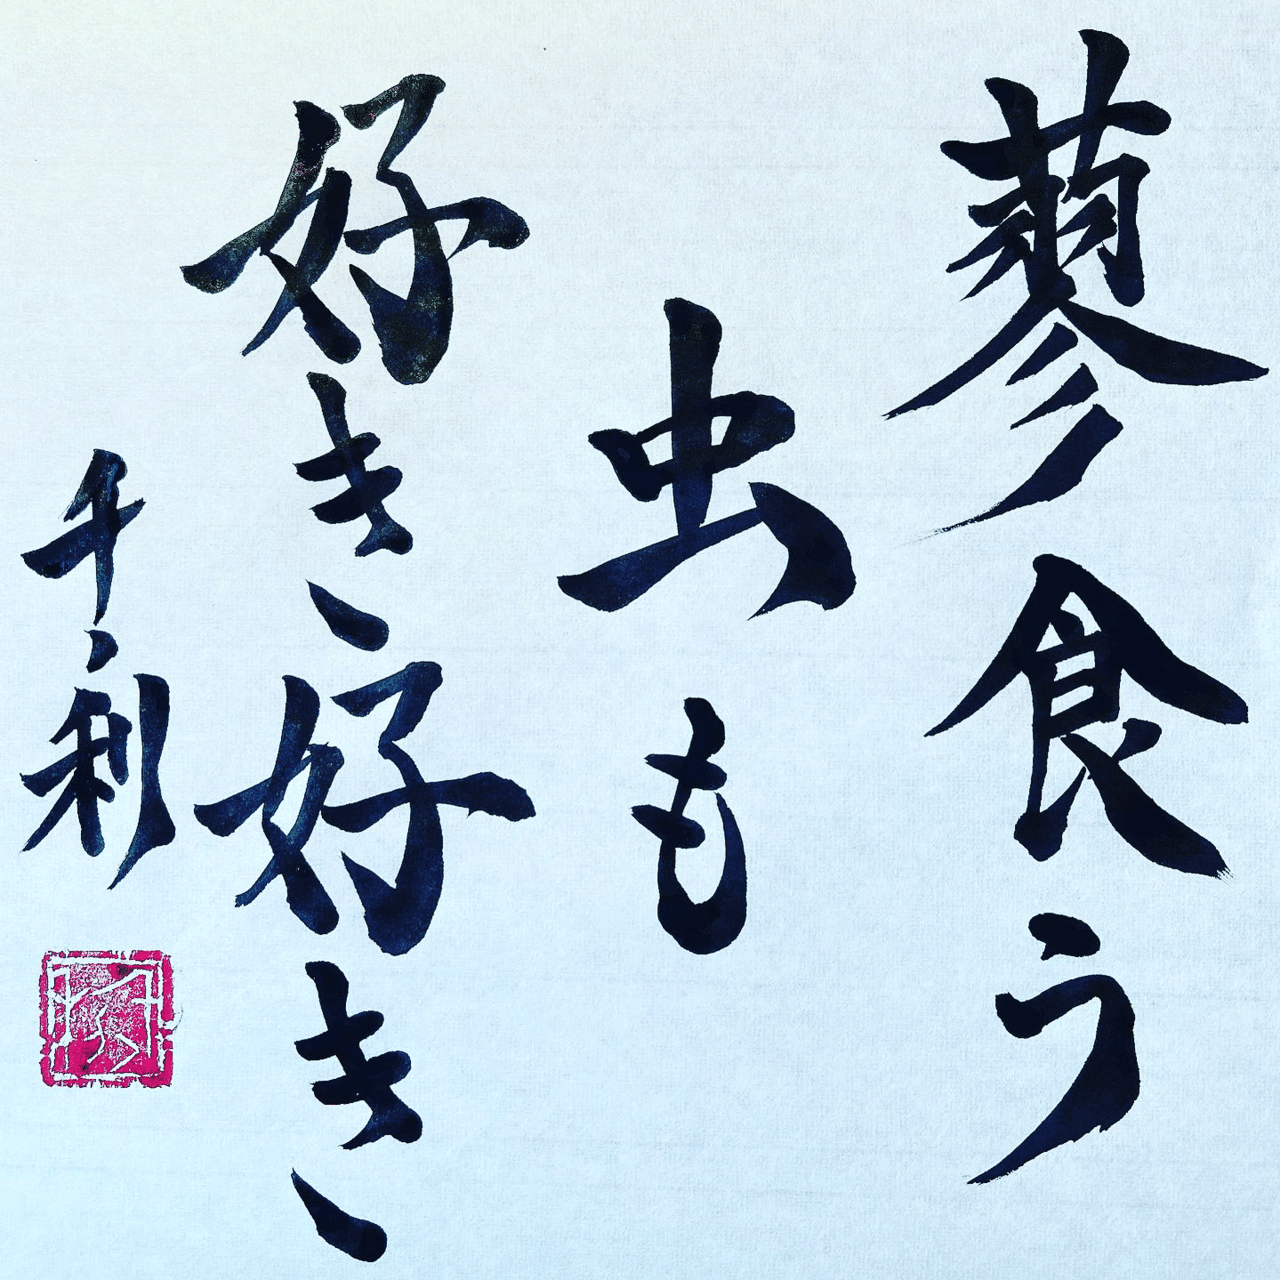 蓼食う
虫も
好き好き
千利